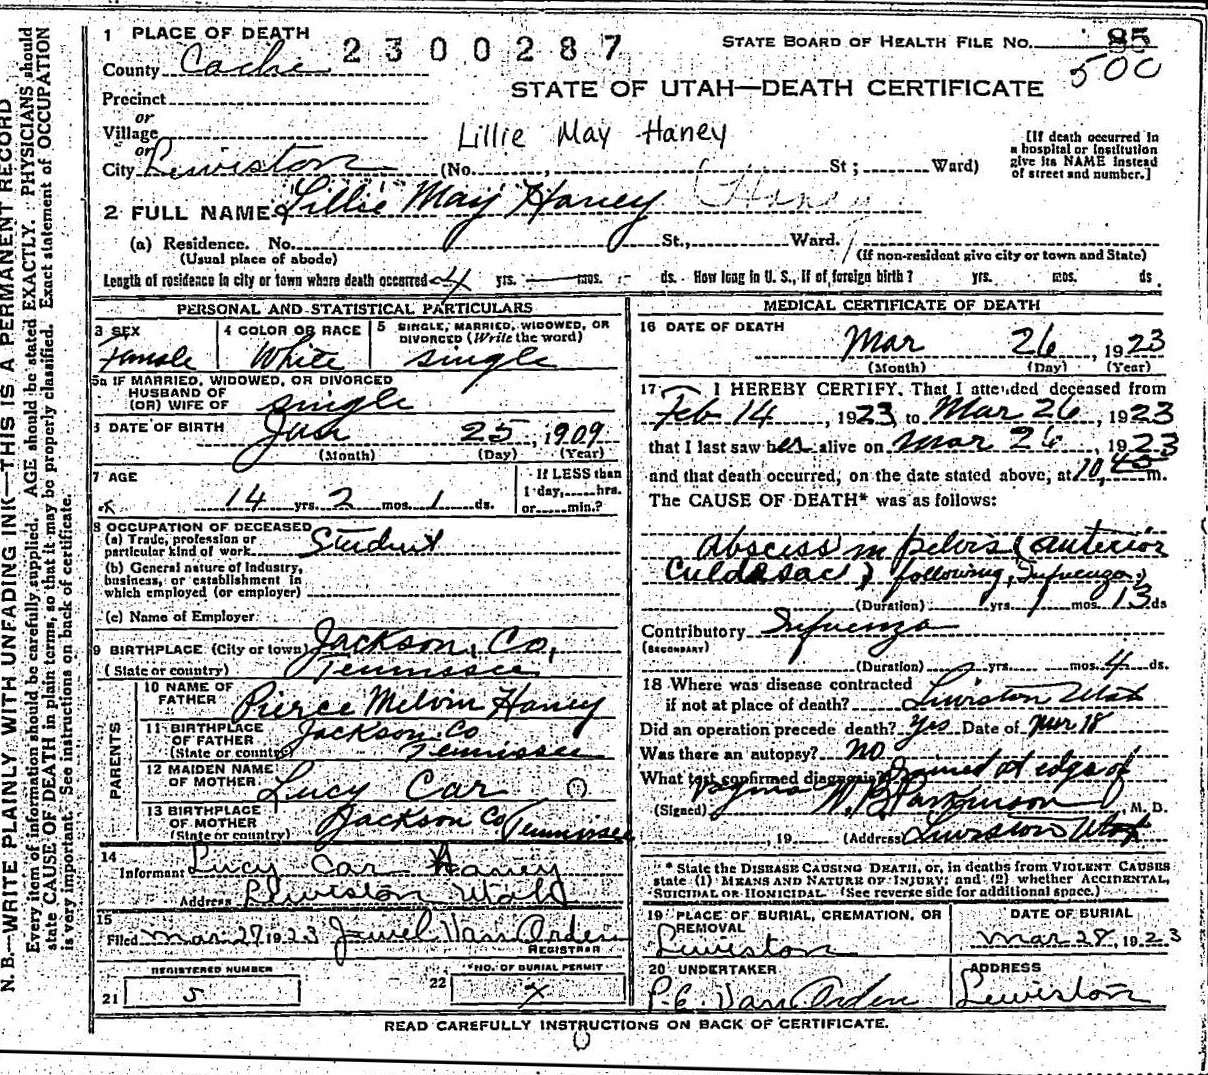 N. B.—WRITE PLAINLY WITH UNFADING INK—THIS IS A PERMANENT RECORD
Every item of information should be carefully supplied. AGE should be stated EXACTLY. PHYSICIANS should
state CAUSE OF DEATH in plain terms, so that it may be properly classified. Exact statement of OCCUPATION
is very important. See instructions on back of certificate.
1 PLACE OF DEATH 2300287 STATE BOARD OF HEALTH FILE No. 85
County Cache 500
STATE OF UTAH—DEATH CERTIFICATE
Precinct
or
Village Lillie May Haney
or
City Lewiston (No. , St; Ward)
[If death occurred in
a hospital or institution
give its NAME instead
of street and number.]
2 FULL NAME Lillie May Haney (Haney
(a) Residence. No. St., Ward.
(Usual place of abode) (If non-resident give city or town and State)
Length of residence in city or town where death occurred 4 yrs. — mos. ds. How long in U. S., if of foreign birth? yrs. mos. ds
PERSONAL AND STATISTICAL PARTICULARS
3 SEX 4 COLOR OR RACE 5 SINGLE, MARRIED, WIDOWED, OR
DIVORCED (Write the word)
Female White single
5a IF MARRIED, WIDOWED, OR DIVORCED
HUSBAND OF
(OR) WIFE OF single
6 DATE OF BIRTH Jan 25, 1909
(Month) (Day) (Year)
7 AGE If LESS than
14 yrs. 2 mos. 1 ds. 1 day, hrs.
or min.?
8 OCCUPATION OF DECEASED
(a) Trade, profession or
particular kind of work Student
(b) General nature of Industry,
business, or establishment in
which employed (or employer)
(c) Name of Employer
9 BIRTHPLACE (City or town) Jackson, Co,
(State or country) Tennissee
PARENTS
10 NAME OF
FATHER Pierce Melvin Haney
11 BIRTHPLACE
OF FATHER Jackson Co
(State or country) Tennissee
12 MAIDEN NAME
OF MOTHER Lucy Car
13 BIRTHPLACE
OF MOTHER Jackson Co Tennissee
(State or country)
14
Informant Lucy Car Haney
Address Lewiston Utah
15
Filed Mar 27 1923 Jewel Van Orden
REGISTRAR
REGISTERED NUMBER No. OF BURIAL PERMIT
21 5 22 X
MEDICAL CERTIFICATE OF DEATH
16 DATE OF DEATH
Mar 26, 1923
(Month) (Day) (Year)
17 I HEREBY CERTIFY, That I attended deceased from
Feb 14, 1923 to Mar 26, 1923
that I last saw her alive on Mar 26, 1923
and that death occurred, on the date stated above, at 10,45 m.
The CAUSE OF DEATH* was as follows:
Abscess in pelvis (anterior
Culdesac) following, Infuenza,
(Duration) yrs. 1 mos. 13 ds
Contributory Infuenza
(SECONDARY)
(Duration) yrs. mos. 4 ds.
18 Where was disease contracted
if not at place of death? Lewiston Utah
Did an operation precede death? Yes Date of Mar 18
Was there an autopsy? NO
What test confirmed diagnosis? at edge of
(Signed) Parkinson M. D.
, 19 (Address) Lewiston Utah
* State the DISEASE CAUSING DEATH, or, in deaths from VIOLENT CAUSES
state (1) MEANS AND NATURE OF INJURY; and (2) whether ACCIDENTAL,
SUICIDAL OR HOMICIDAL. (See reverse side for additional space.)
19 PLACE OF BURIAL, CREMATION, OR
REMOVAL DATE OF BURIAL
Lewiston Mar 28, 1923
20 UNDERTAKER ADDRESS
P.E. Van Orden Lewiston
READ CAREFULLY INSTRUCTIONS ON BACK OF CERTIFICATE.